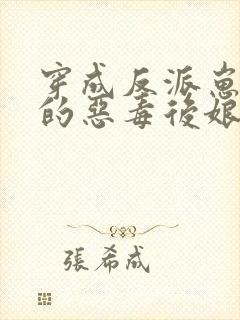 穿成反派崽
的惡毒後娘
張希成